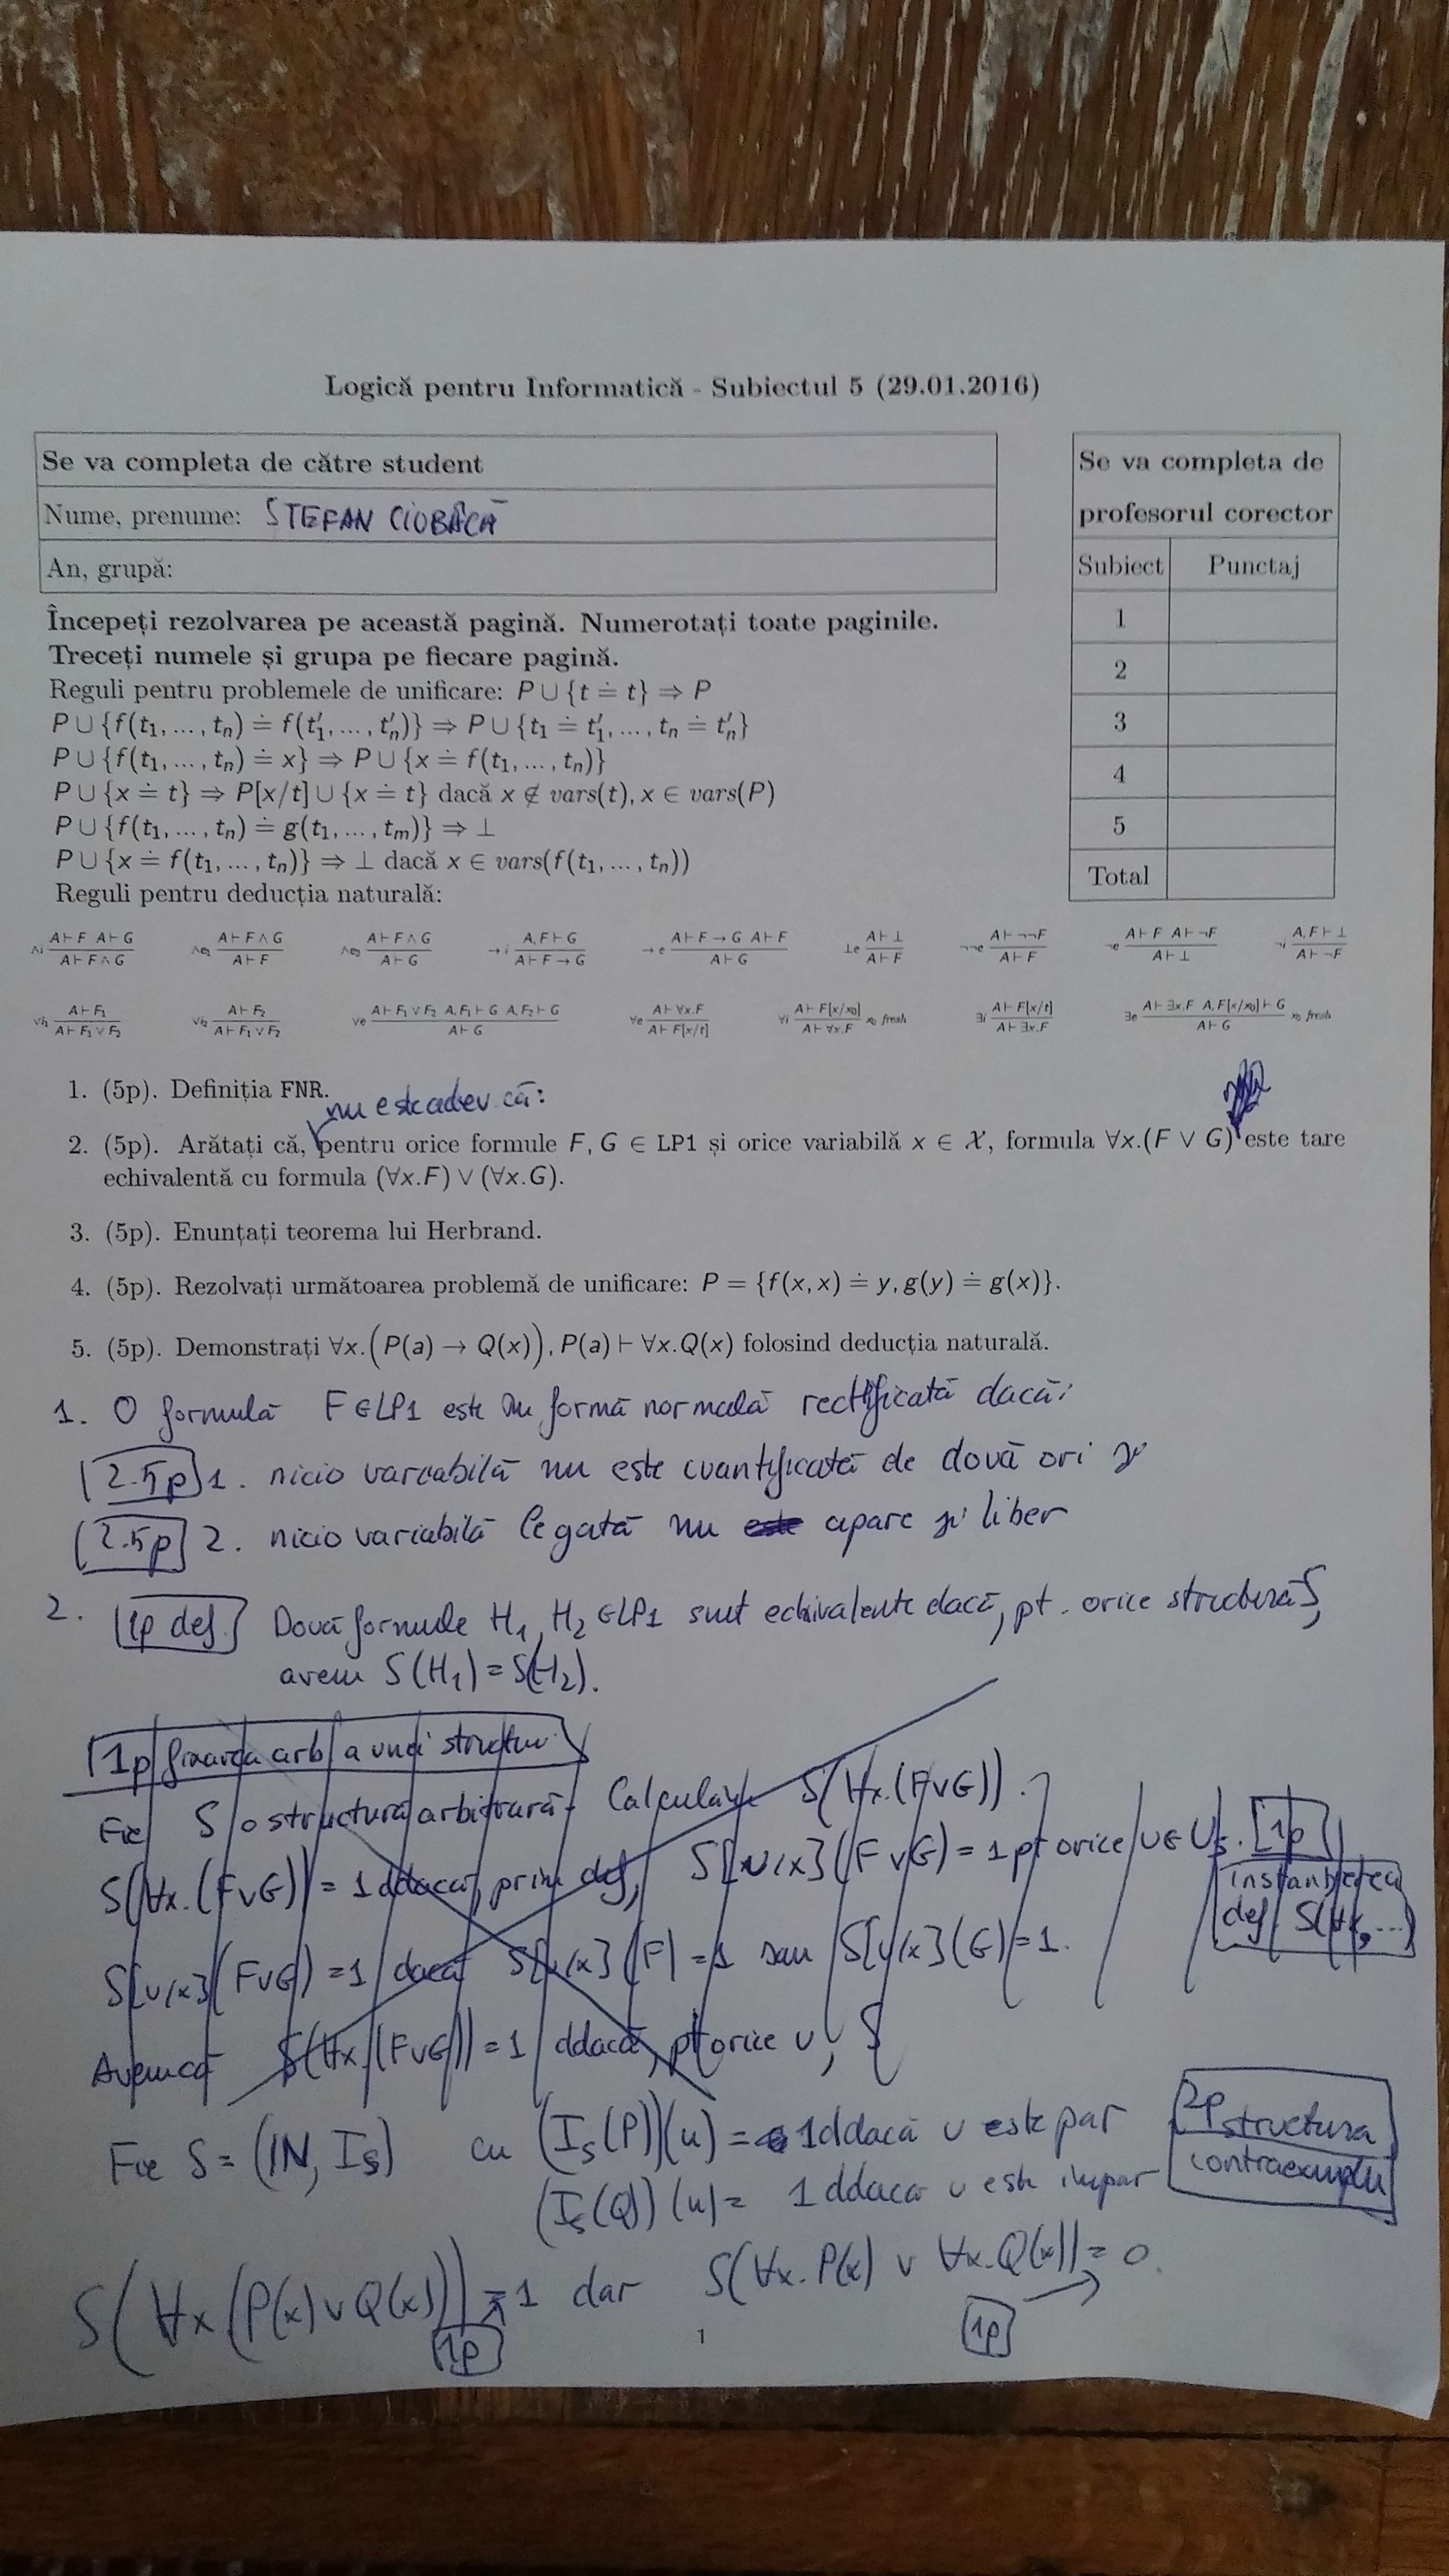 Logică pentru Informatică - Subiectul 5 (29.01.2016)
Se va completa de către student
Nume, prenume: STEFAN CIOBÂCĂ
An, grupă:
Se va completa de
profesorul corector
Subiect Punctaj
1
2
3
4
5
Total
Începeți rezolvarea pe această pagină. Numerotați toate paginile.
Treceți numele și grupa pe fiecare pagină.
Reguli pentru problemele de unificare: P ∪ {t ≐ t} ⇒ P
P ∪ {f(t₁, ..., tₙ) ≐ f(t'₁, ..., t'ₙ)} ⇒ P ∪ {t₁ ≐ t'₁, ..., tₙ ≐ t'ₙ}
P ∪ {f(t₁, ..., tₙ) ≐ x} ⇒ P ∪ {x ≐ f(t₁, ..., tₙ)}
P ∪ {x ≐ t} ⇒ P[x/t] ∪ {x ≐ t} dacă x ∉ vars(t), x ∈ vars(P)
P ∪ {f(t₁, ..., tₙ) ≐ g(t₁, ..., tₘ)} ⇒ ⊥
P ∪ {x ≐ f(t₁, ..., tₙ)} ⇒ ⊥ dacă x ∈ vars(f(t₁, ..., tₙ))
Reguli pentru deducția naturală:
∧i A⊢F A⊢G / A⊢F∧G ∧e₁ A⊢F∧G / A⊢F ∧e₂ A⊢F∧G / A⊢G →i A,F⊢G / A⊢F→G →e A⊢F→G A⊢F / A⊢G ⊥e A⊢⊥ / A⊢F ¬¬e A⊢¬¬F / A⊢F ¬e A⊢F A⊢¬F / A⊢⊥ ¬i A,F⊢⊥ / A⊢¬F
∨i₁ A⊢F₁ / A⊢F₁∨F₂ ∨i₂ A⊢F₂ / A⊢F₁∨F₂ ∨e A⊢F₁∨F₂ A,F₁⊢G A,F₂⊢G / A⊢G ∀e A⊢∀x.F / A⊢F[x/t] ∀i A⊢F[x/x₀] / A⊢∀x.F x₀ fresh ∃i A⊢F[x/t] / A⊢∃x.F ∃e A⊢∃x.F A,F[x/x₀]⊢G / A⊢G x₀ fresh
1. (5p). Definiția FNR.
nu este adev. că:
2. (5p). Arătați că, pentru orice formule F, G ∈ LP1 și orice variabilă x ∈ 𝒳, formula ∀x.(F ∨ G) este tare
echivalentă cu formula (∀x.F) ∨ (∀x.G).
3. (5p). Enunțați teorema lui Herbrand.
4. (5p). Rezolvați următoarea problemă de unificare: P = {f(x, x) ≐ y, g(y) ≐ g(x)}.
5. (5p). Demonstrați ∀x.(P(a) → Q(x)), P(a) ⊢ ∀x.Q(x) folosind deducția naturală.
1. O formulă F ∈ LP1 este în formă normală rectificată dacă:
2.5p 1. nicio variabilă nu este cuantificată de două ori și
2.5p 2. nicio variabilă legată nu este apare și liber
2. 1p def. Două formule H₁, H₂ ∈ LP1 sunt echivalente dacă, pt. orice structură S,
avem S(H₁) = S(H₂).
1p fixarea arb a unei structuri
Fie S o structură arbitrară. Calculăm S(∀x.(F∨G)).
S(∀x.(F∨G)) = 1 ddacă, prin def, S[u/x](F∨G) = 1 pt orice u ∈ Us. 1p
instantierea
def. S(∀x, ...)
S[u/x](F∨G) = 1 dacă S[u/x](F) = 1 sau S[u/x](G) = 1.
Avem că S(∀x.(F∨G)) = 1 ddacă, pt orice u, S
Fie S = (ℕ, Is) cu (Is(P))(u) = 1 ddacă u este par
(Is(Q))(u) = 1 ddacă u este impar
2p structura
contraexemplu
S(∀x(P(x)∨Q(x))) = 1 dar S(∀x.P(x) ∨ ∀x.Q(x)) = 0.
1p 1p
1